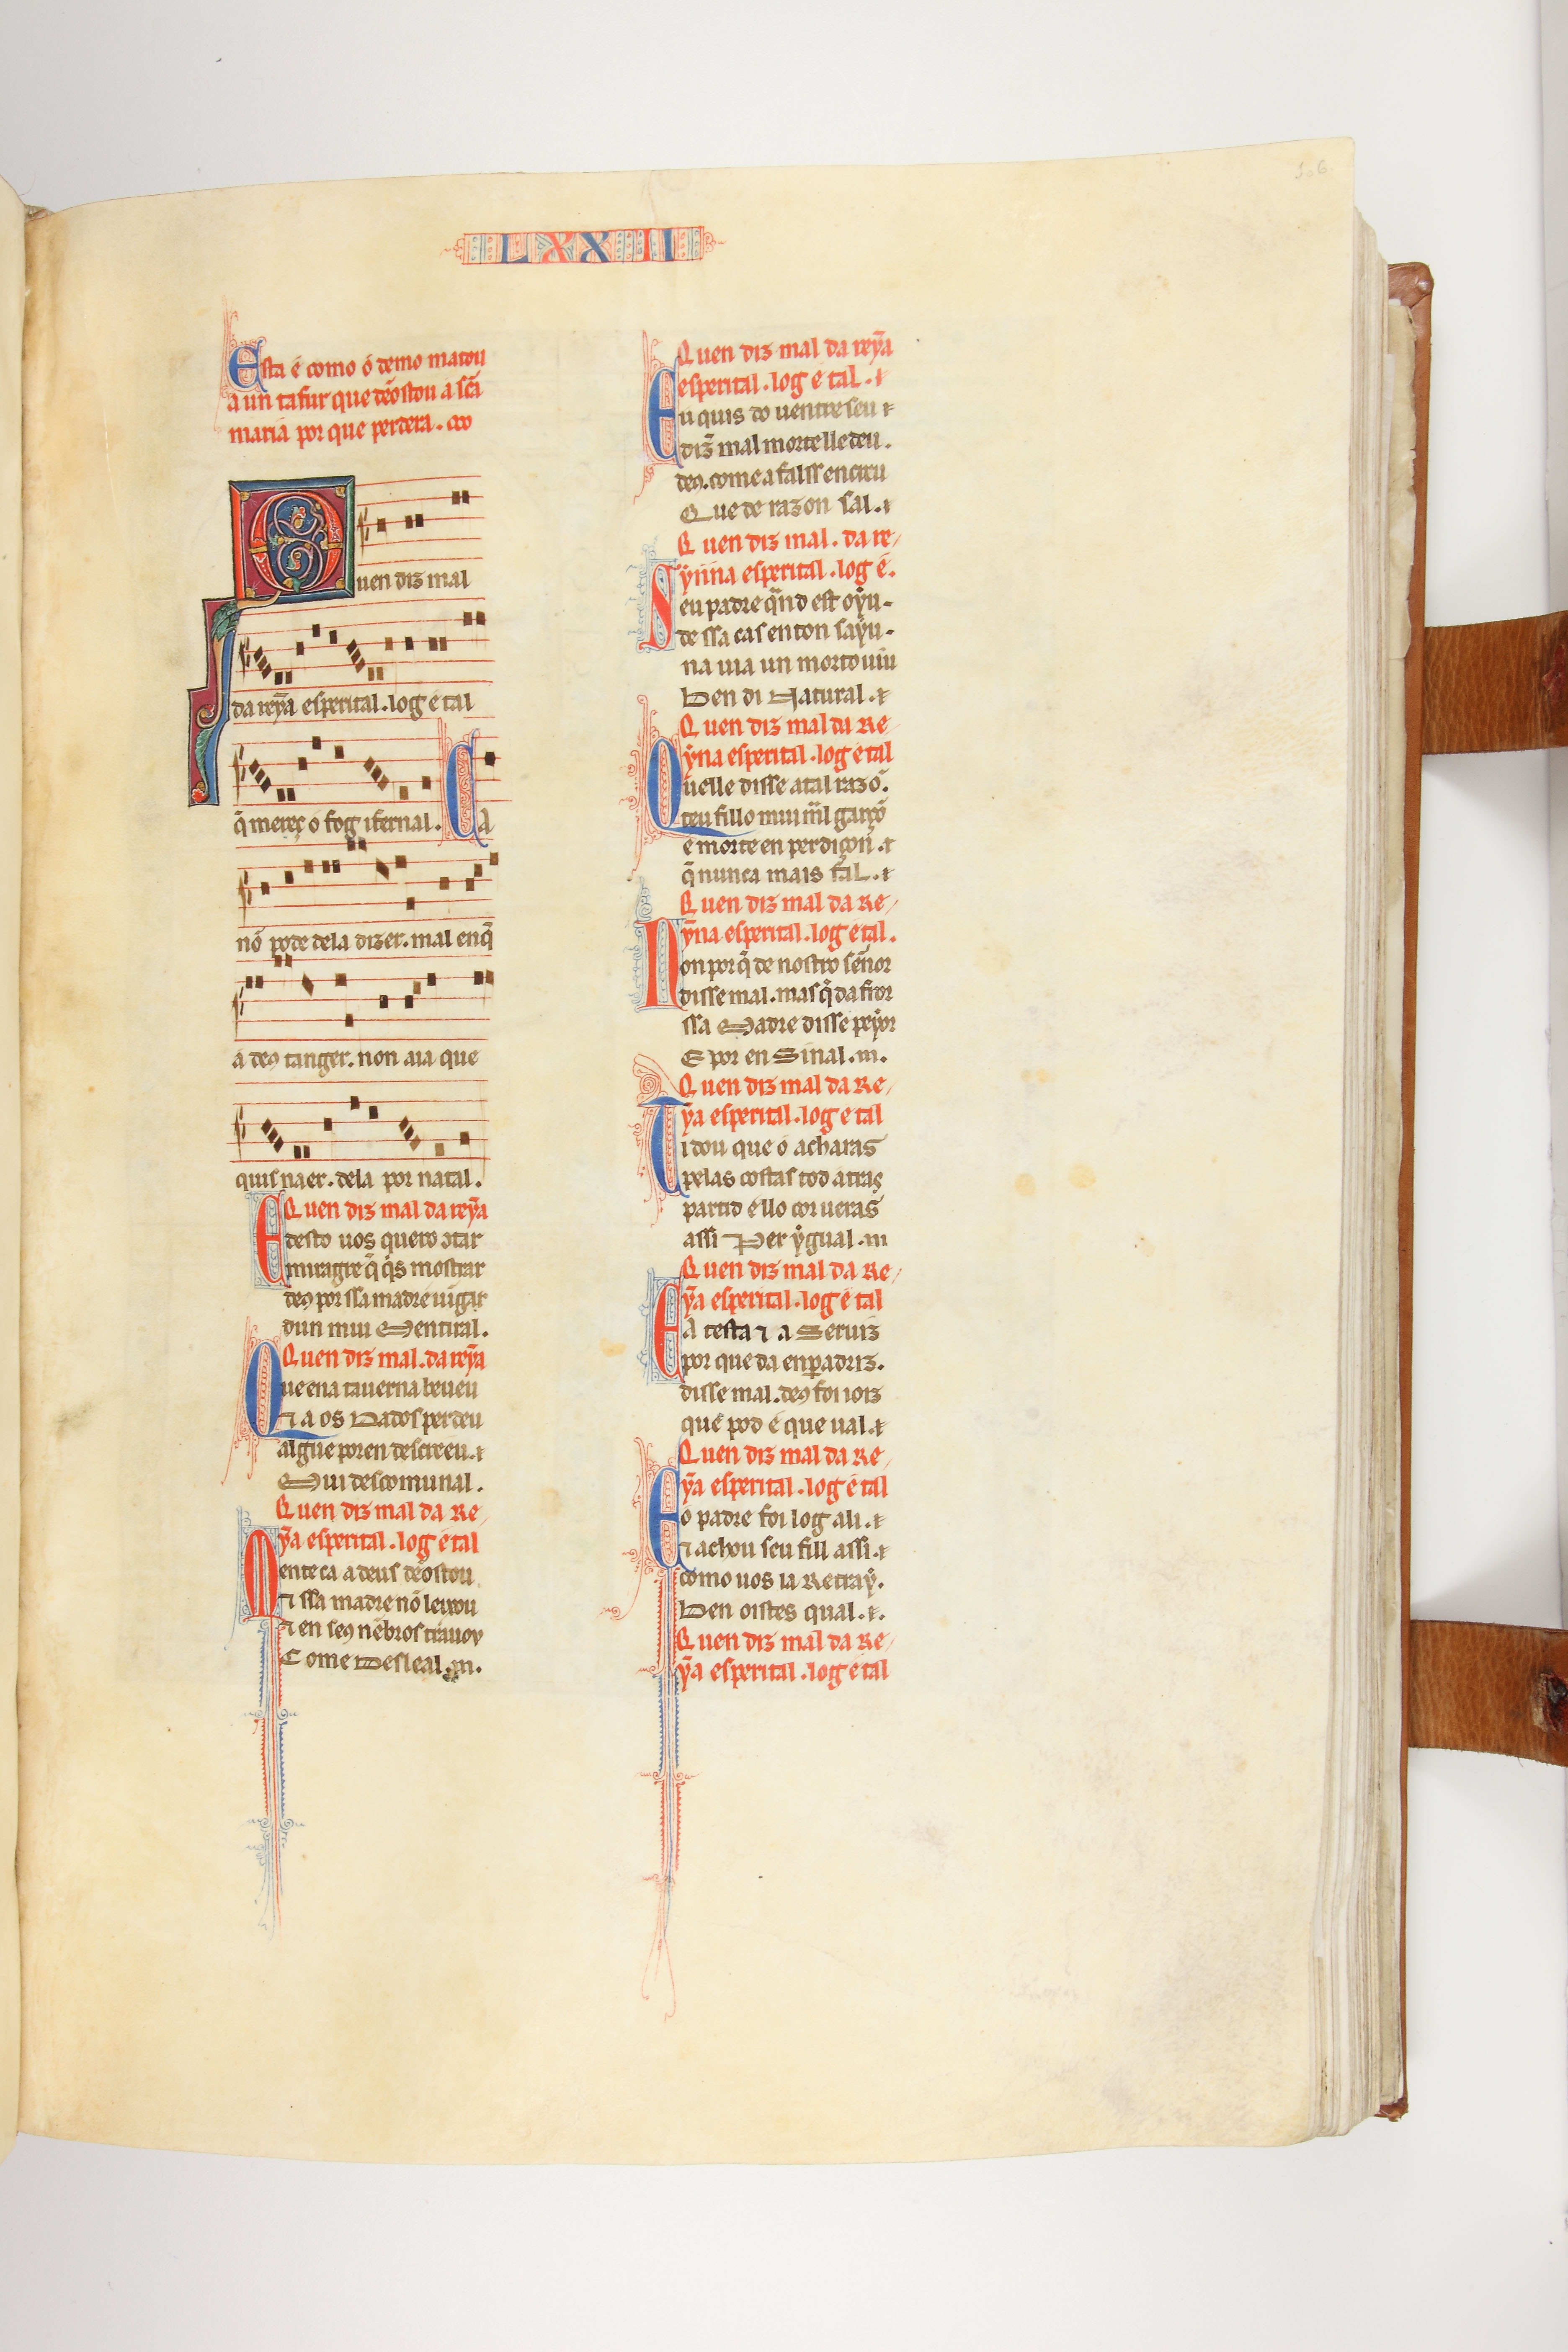 106
LXXII
Esta é como o demo matou
a un tafur que dẽostou a scã
maria por que perdera. ooo
Quen diz mal
da reyã esperital.log é tal
q̃ mereç o fog ifernal. Ca
nõ pode dela dizer.mal enq̃
a deꝯ tanger.non aia que
quis naer.dela por natal.
Quen diz mal da reyã
E desto uos quero ɔtar
miragre q̃ q̇s mostrar
deꝯ por ssa madre uĩgar
dun mui Mentiral.
Quen diz mal.da reyã
Que ena tauerna beueu
⁊ a os Dados perdeu
algu e poren descreeu.⁊
Mui descomunal.
Quen diz mal da Re-
yã esperital.log é tal
Mente ca a deus dẽostou
⁊ ssa madre nõ leixou
⁊ en seꝯ nẽbros trauou
Come Desleal.m.
Quen diz mal da reyã
esperital.log é tal.⁊
Eu quis do uentre seu ⁊
diz̃ mal morte lle deu.
deꝯ.come a falss encreu
Que de razon sal.⁊
Quen diz mal.da re-
ynna esperital.log é.
Seu padre q̃nd est oyu-
de ssa cas enton sayu-
na uia un morto uiu
Ben di Natural.⁊
Quen diz mal da Re-
yna esperital.log é tal
Quelle disse atal razõ.
teu fillo mui m̃l garçõ
é morte en perdiçon.⁊
q̃ nunca mais fal.⁊
Quen diz mal da Re-
yna esperital.log é tal.
Non por q̃ de nostro sẽnor
disse mal.mas q̃ da fror
ssa Madre disse peyor
E por en Sinal.m.
Quen diz mal da Re-
yã esperital.log é tal
Ti dou que o acharas
pelas costas tod atras
partid é llo cor ueras
assi Per ygual.m
Quen diz mal da Re-
yã esperital.log é tal
E A testa ⁊ a Seruiz
por que da enꝑadriz.
disse mal.deꝯ foi ioiz
que pod é que ual.⁊
Quen diz mal da Re-
yã esperital.log é tal
E o padre foi log ali.⁊
⁊ achou seu fill assi.⁊
como uos ia Retray.
Ben oistes qual.⁊.
Quen diz mal da Re-
yã esperital.log é tal